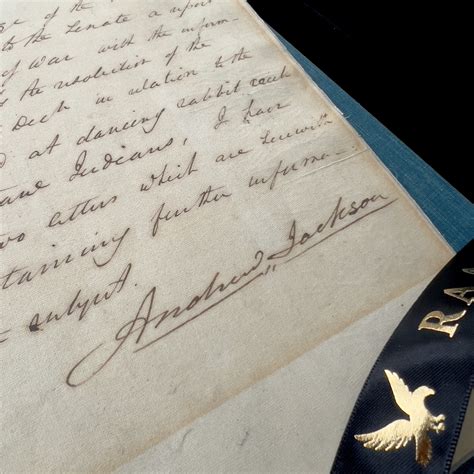 of the
to the Senate a report
of war with the inform-
of the resolution of the
Dech in relation to the
at dancing rabbit creek
Indians, I have
two letters which are herewith
taining further informa-
subject.
Andrew Jackson
RA